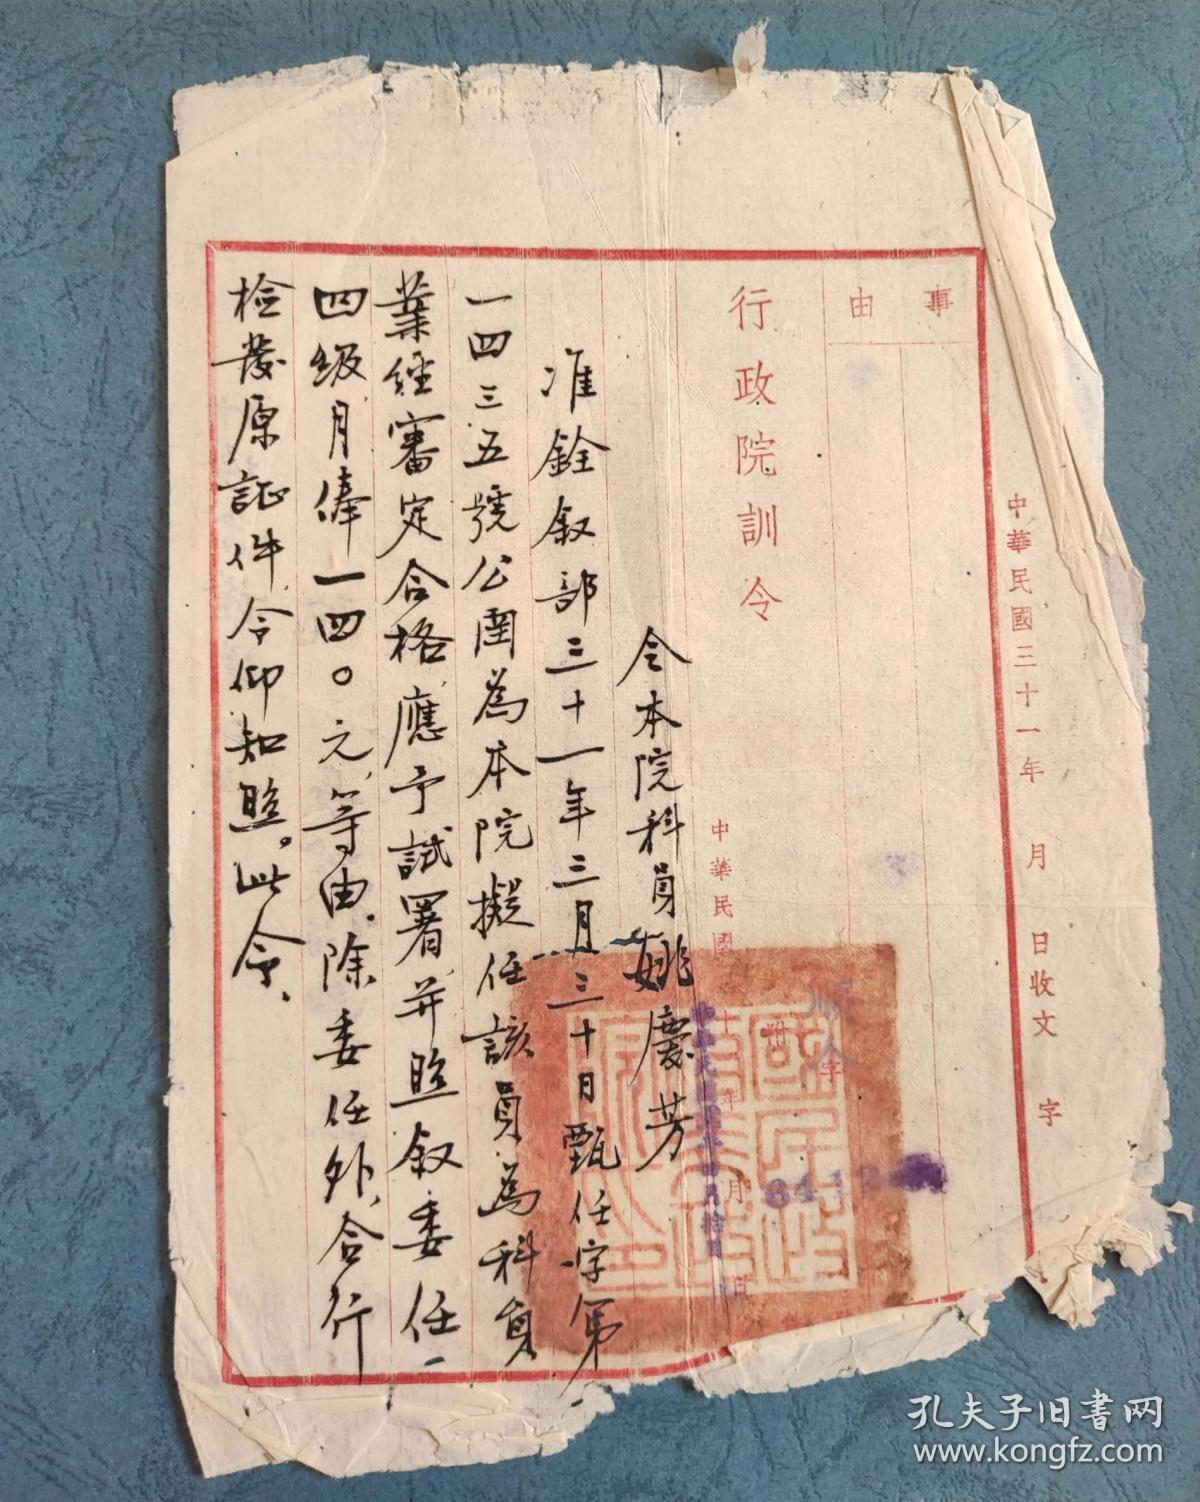 中華民國三十一年　月　日收文　字
事由
行政院訓令
中華民國　十　年　月　日
字
3412
令本院科員姚慶芳
准銓叙部三十一年三月三十日甄任字第
一四三五號公函為本院擬任該員為科員
業經審定合格應予試署并照叙委任
四級月俸一四〇元、等由、除委任外、合行
檢發原証件、令仰知照。此令、
孔夫子旧書网
www.kongfz.com